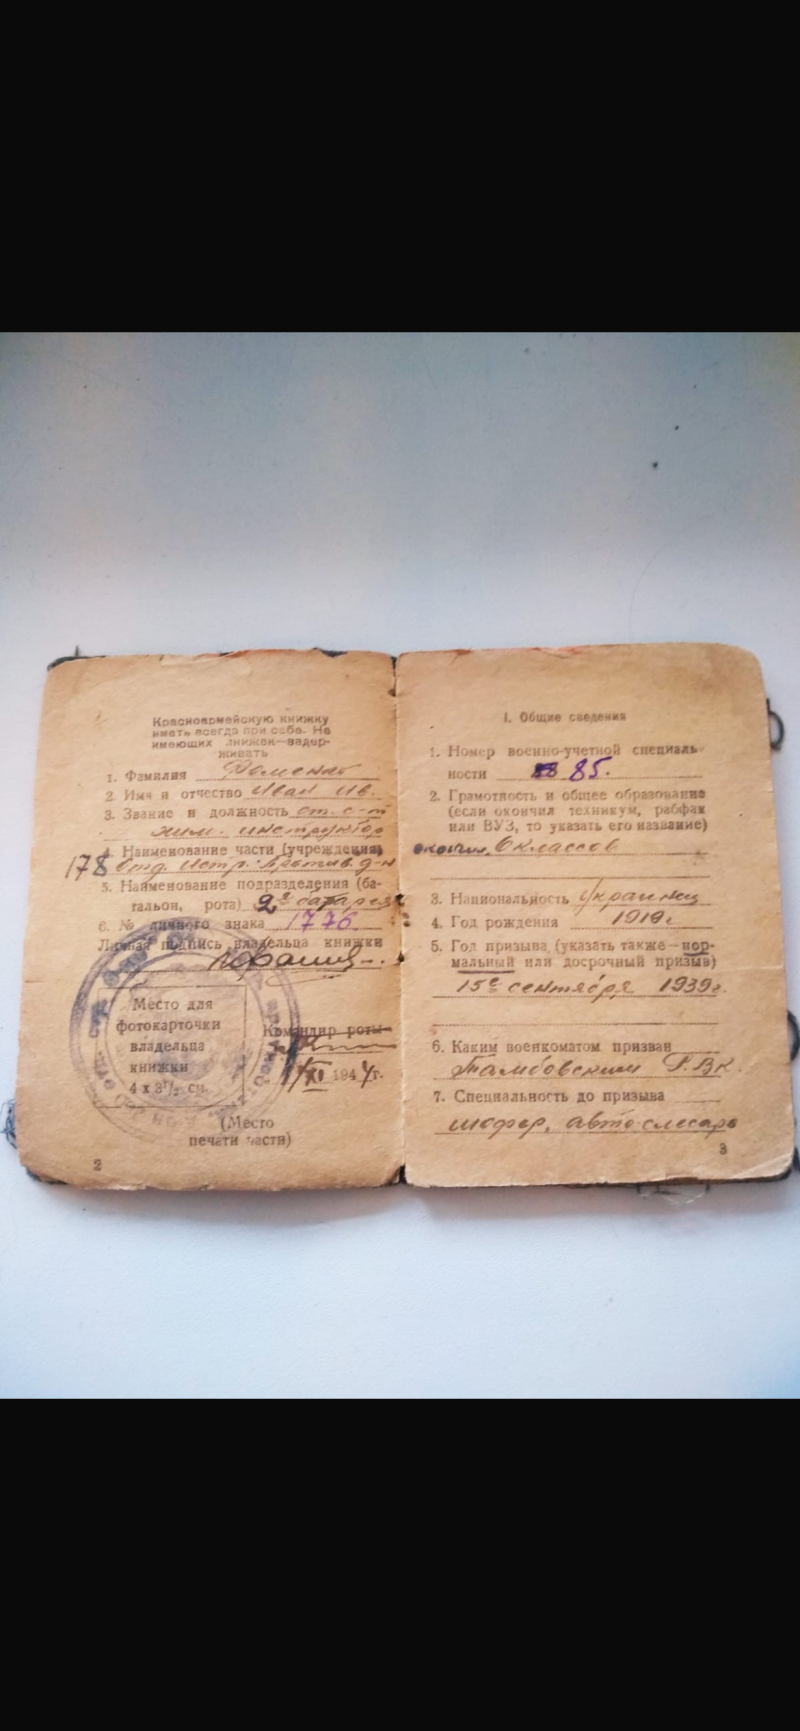 Красноармейскую книжку
иметь всегда при себе. Не
имеющих книжек—задер-
живать
1. Фамилия
2. Имя и отчество Иван Ив.
3. Звание и должность ст. с-т
хим. инструктор
4. Наименование части (учреждения)
178 Отд. Истр. Против. д-н
5. Наименование подразделения (ба-
тальон, рота) 2я батарея
6. № личного знака 1776
Личная подпись владельца книжки
Место для
фотокарточки
владельца
книжки
4 х 3½ см.
Командир роты
XI 1944г.
(Место
печати части)
2
I. Общие сведения
1. Номер военно-учетной специаль-
ности 85.
2. Грамотность и общее образование
(если окончил техникум, рабфак
или ВУЗ, то указать его название)
окончил 6 классов
3. Национальность Украинец
4. Год рождения 1919г
5. Год призыва (указать также — нор-
мальный или досрочный призыв)
15е сентября 1939г.
6. Каким военкоматом призван
Тамбовским Г.В.К.
7. Специальность до призыва
шофер, авто-слесарь
3